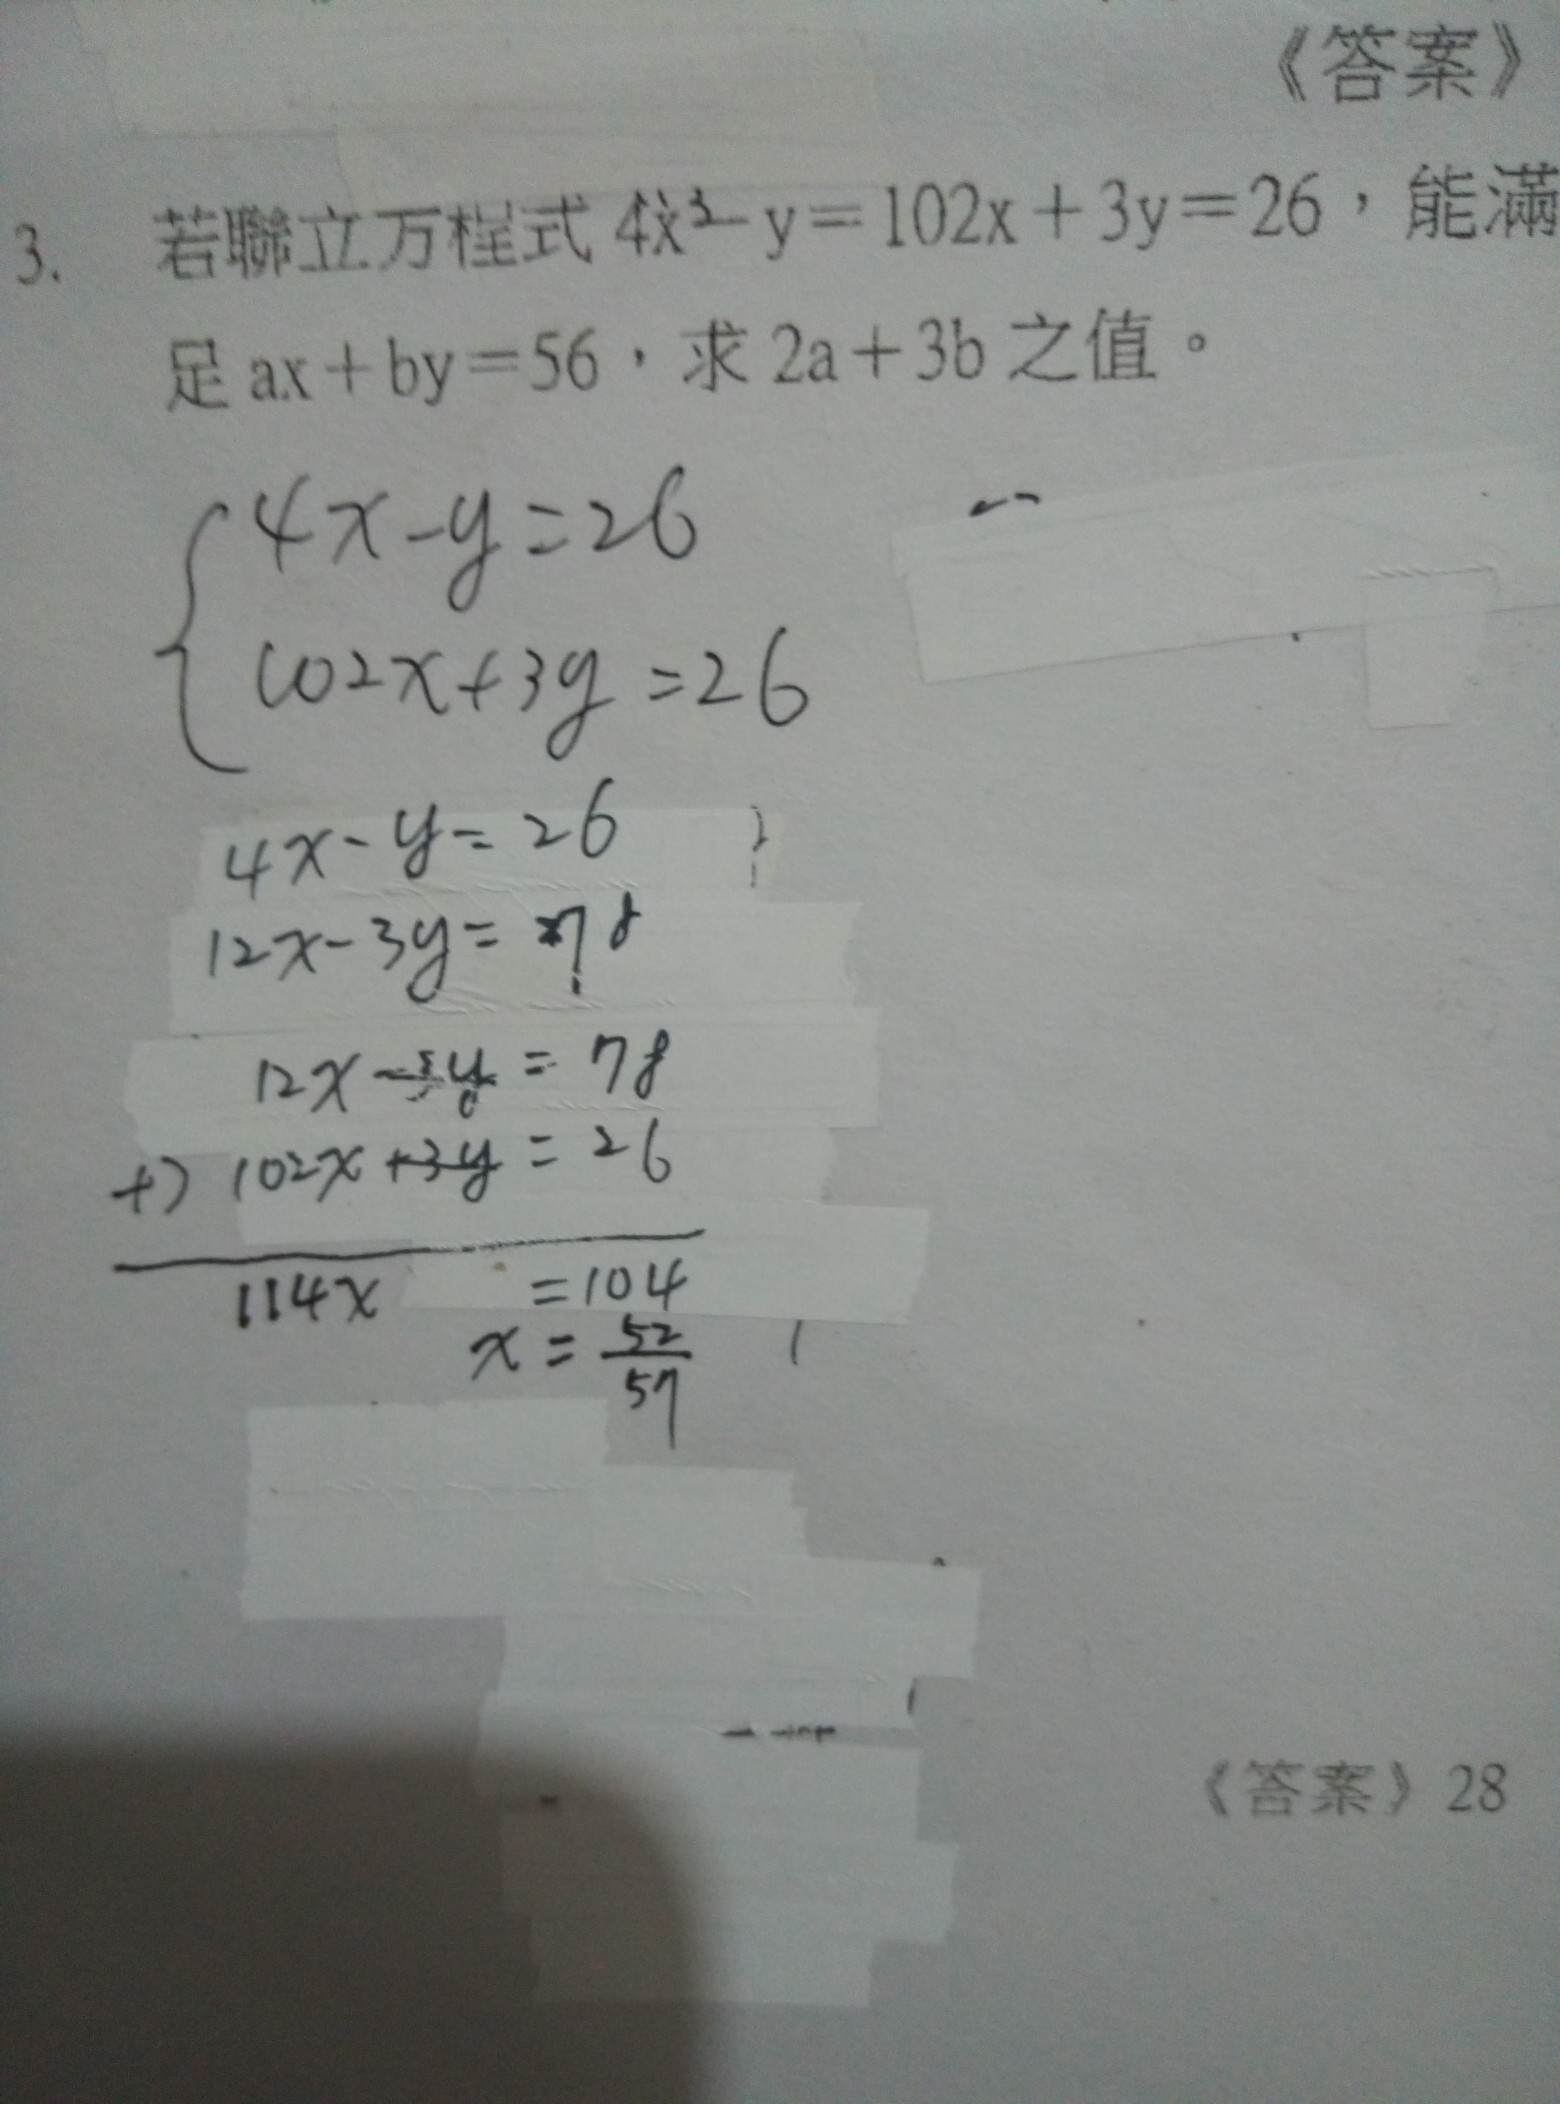 《答案》
3. 若聯立方程式 4x－y＝102x＋3y＝26，能滿
足 ax＋by＝56，求 2a＋3b 之值。
4x-y=26
102x+3y=26
4x-y=26
12x-3y=78
12x-3y=78
+) 102x+3y=26
114x =104
x=52/57
《答案》28